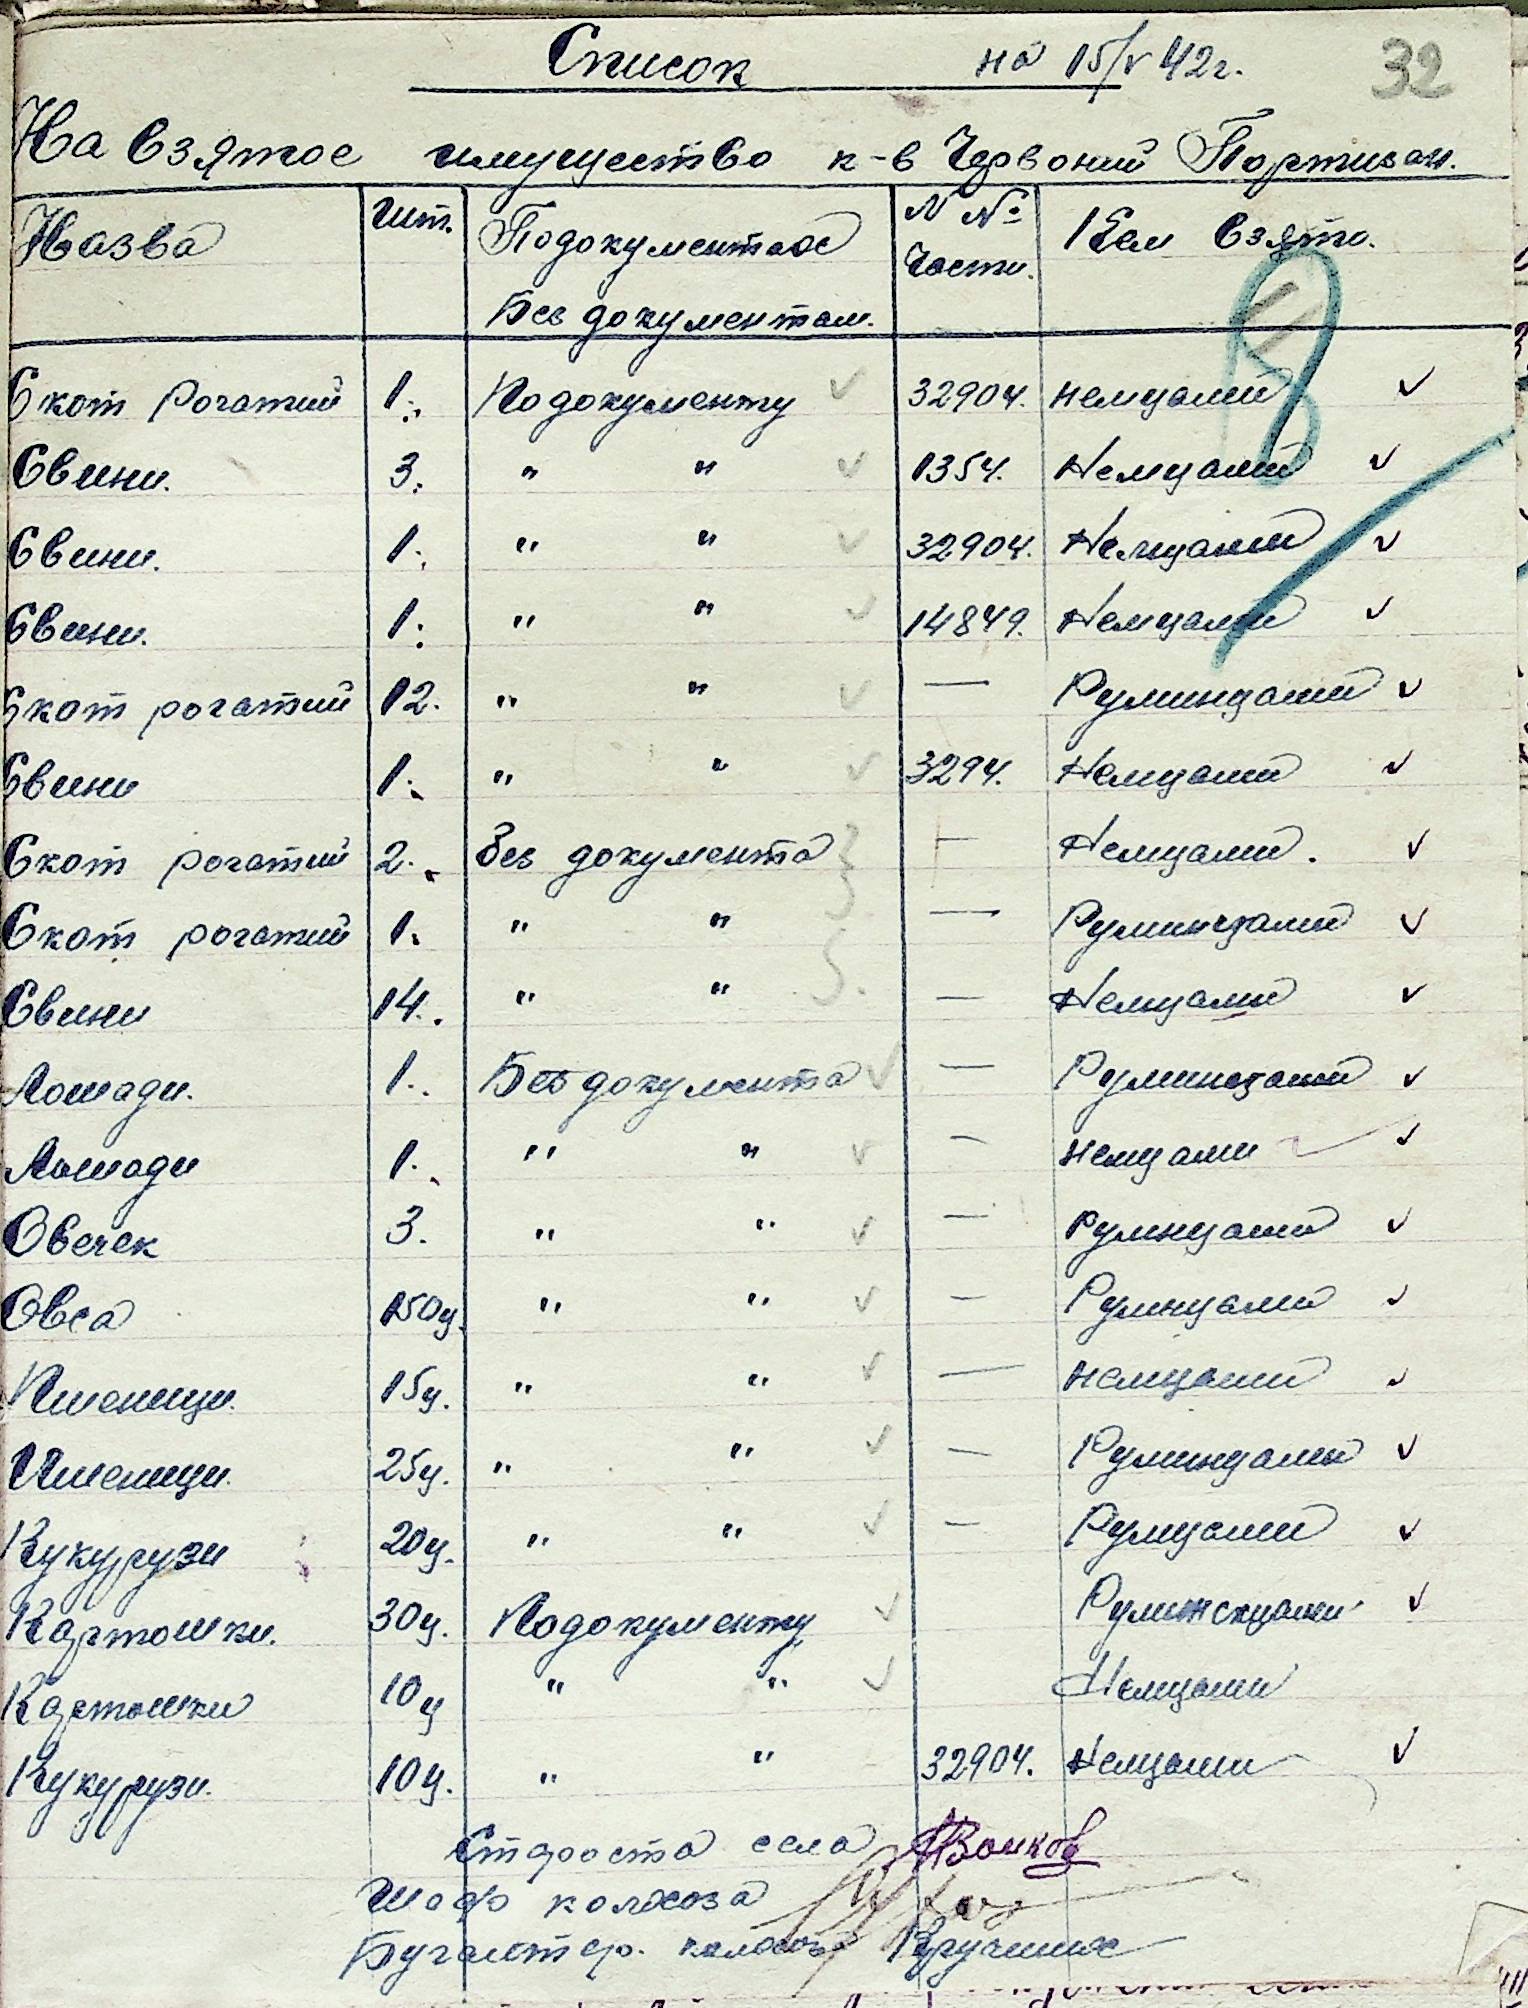 Список на 15/V 42г. 32
На взятое имущество к-в Червоний Портизан.
Назва шт. Подокументах N№ Кем взято.
Части.
Без документам.
Скот рогатий 1. Подокументу 32904. немцами
Свини. 3. " " 1354. Немцами
Свини. 1. " " 32904. Немцами
Свини. 1. " " 14849. Немцами
Скот рогатий 12. " " — Руминцами
Свини 1. " " 3294. Немцами
Скот рогатий 2. Без документа — Немцами.
Скот рогатий 1. " " — Руминцами
Свини 14. " " — Немцами
Лошади. 1. Без документа — Руминцами
Лошади 1. " " — немцами
Овечек 3. " " — Румнцами
Овса 150ц. " " — Румнцами
Пшеници. 15ц. " " — немцами
Пшеници. 25ц. " " — Руминцами
Кукурузи 20ц. " " — Румцами
Картошки. 30ц. Подокументу
Картошки 10ц " " Немцами
Кукурузи. 10ц. " " 32904. Немцами
Староста села Волков
Шаф колхоза
Бугалтер. колхоза